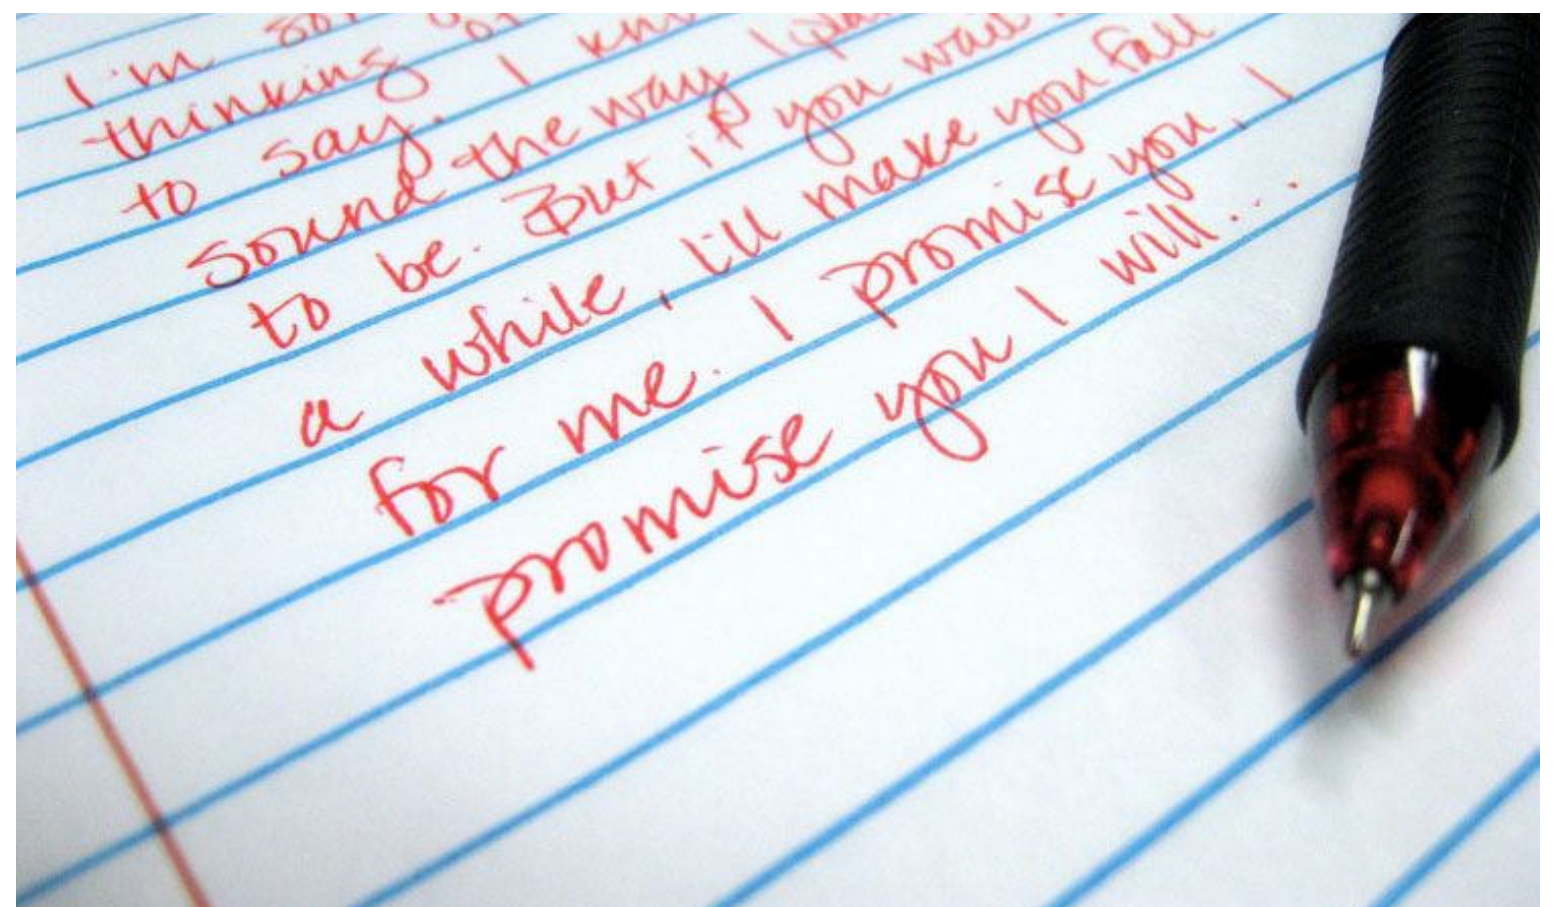 I'm
thinking
to say. I
sound the way I
to be. But if you wait
a while, I'll make you fall
for me. I promise you, I
promise you I will...